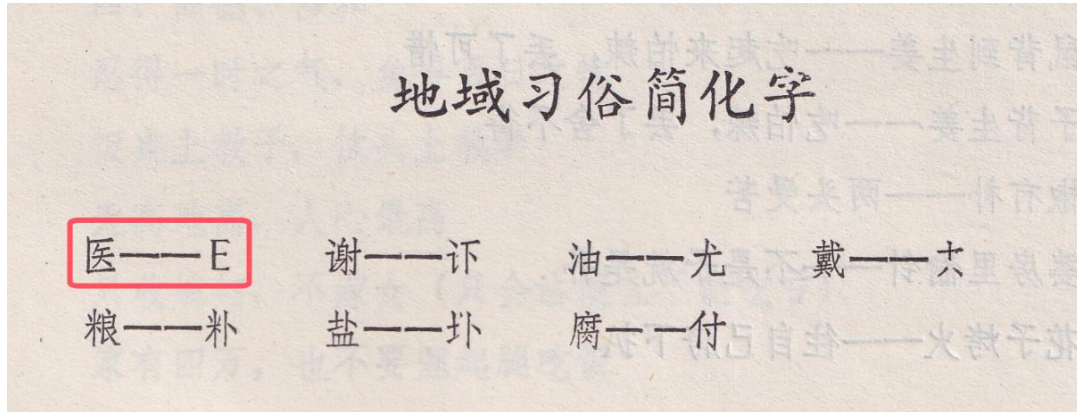 地域习俗简化字
医——E 谢—— 油——尤 戴——
粮—— 盐——圤 腐——付